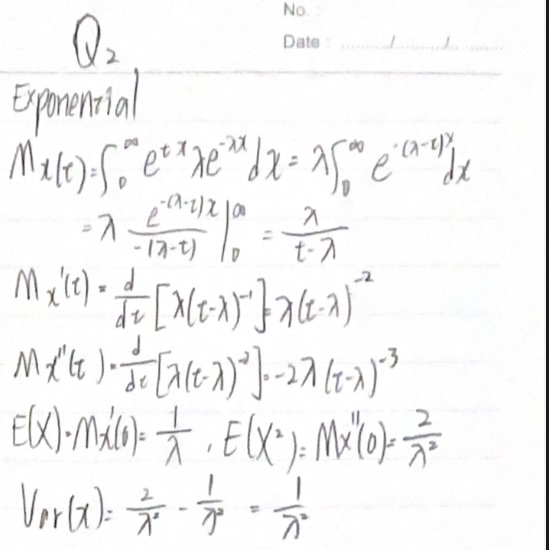 No. :
Date :
Q₂
Exponential
Mx(t)=∫₀^∞ e^{tx} λe^{-λx} dx = λ∫₀^∞ e^{-(λ-t)x} dx
= λ e^{-(λ-t)x}/-(λ-t) |₀^∞ = λ/(t-λ)
Mx'(t) = d/dt [λ(t-λ)^{-1}] = λ(t-λ)^{-2}
Mx''(t) = d/dt [λ(t-λ)^{-2}] = -2λ(t-λ)^{-3}
E(X) = Mx'(0) = 1/λ , E(X²) = Mx''(0) = 2/λ²
Var(x) = 2/λ² - 1/λ² = 1/λ²